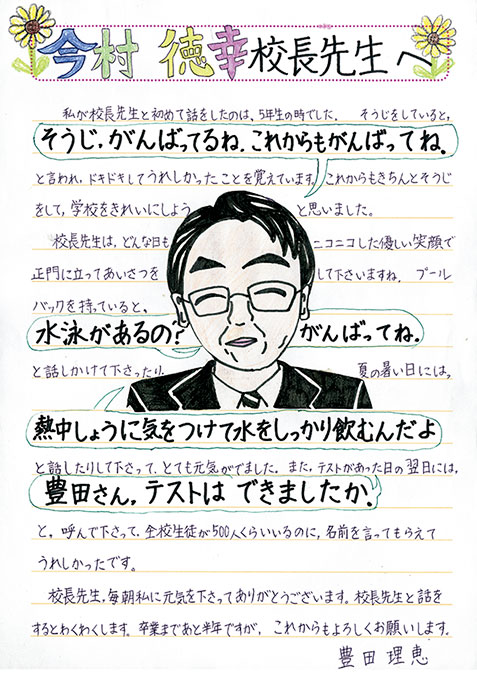 今村 徳幸校長先生へ
私が校長先生と初めて話をしたのは、5年生の時でした。 そうじをしていると、
そうじ、がんばってるね。これからもがんばってね。
と言われ、ドキドキしてうれしかったことを覚えています。これからもきちんとそうじ
をして、学校をきれいにしよう と思いました。
校長先生は、どんな日も ニコニコした優しい笑顔で
正門に立ってあいさつを して下さいますね。 プール
バックを持っていると、
水泳があるの？ がんばってね。
と話しかけて下さったり、 夏の暑い日には、
熱中しょうに気をつけて水をしっかり飲むんだよ
と話したりして下さって、とても元気がでました。また、テストがあった日の翌日には、
豊田さん、テストは できましたか。
と、呼んで下さって、全校生徒が500人くらいいるのに、名前を言ってもらえて
うれしかったです。
校長先生、毎朝私に元気を下さってありがとうございます。校長先生と話を
するとわくわくします。卒業まであと半年ですが、これからもよろしくお願いします。
豊田 理恵